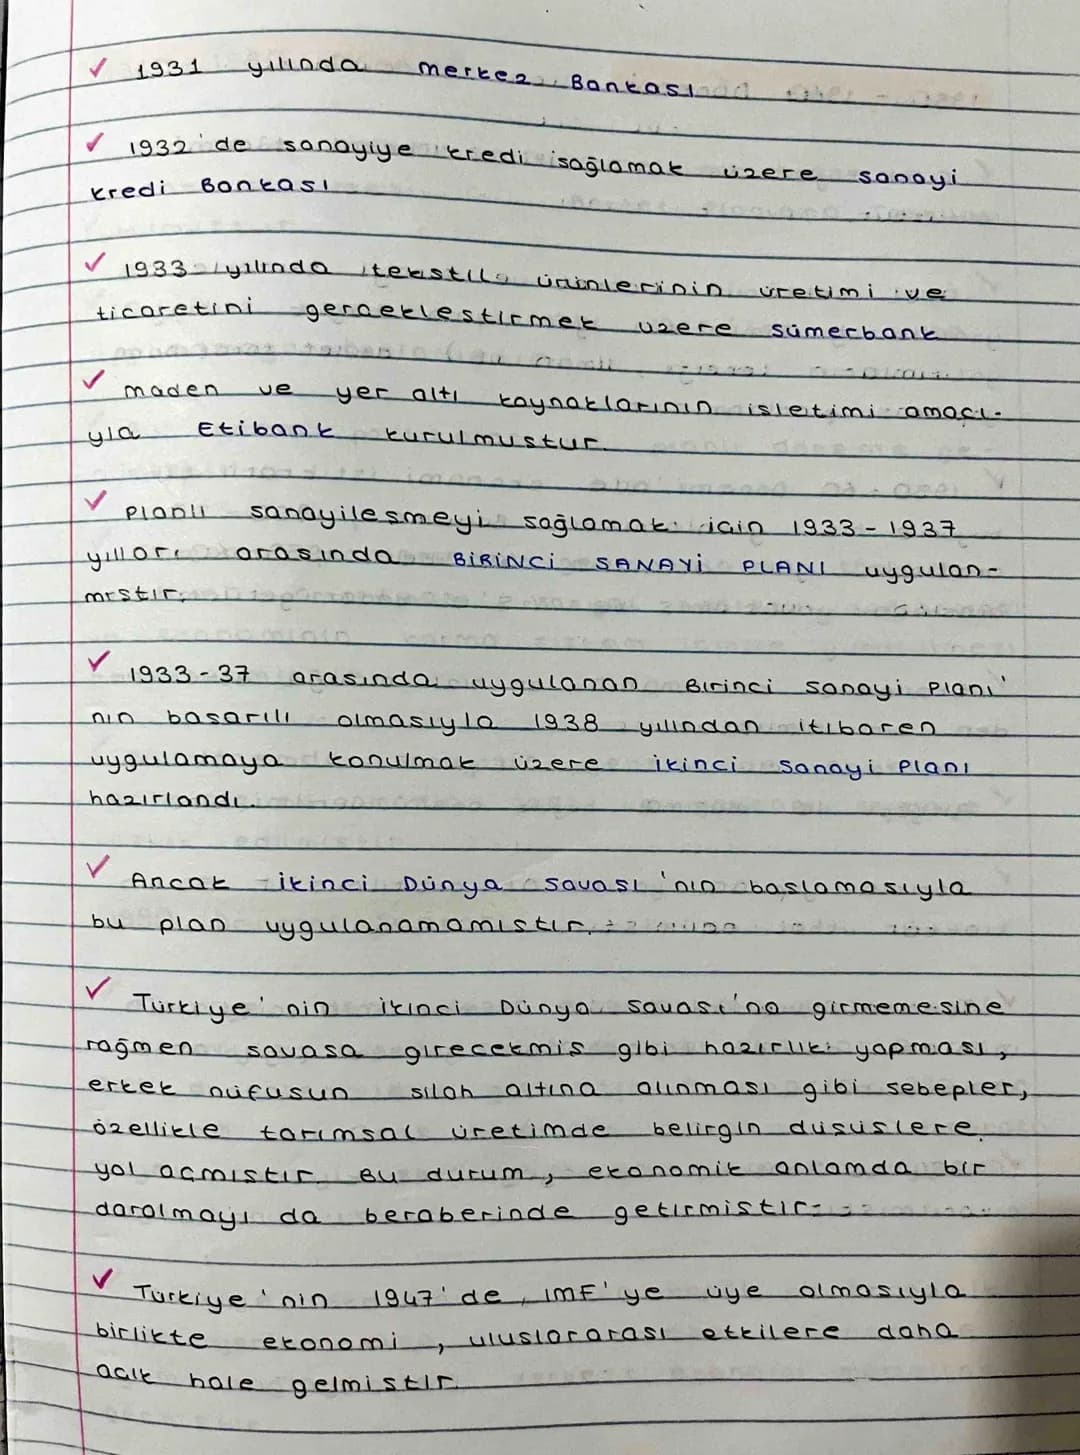 ✓ 1931 yılında merkez Bankası
✓ 1932'de sanayiye kredi sağlamak üzere sanayi
kredi Bankası
✓ 1933 yılında tekstil ürünlerinin üretimi ve
ticaretini gerçekleştirmek üzere sümerbank
✓ maden ve yer altı kaynaklarının işletimi amacı-
yla Etibank kurulmuştur.
✓ Planlı sanayileşmeyi sağlamak için 1933-1937
yılları arasında BİRİNCİ SANAYİ PLANI uygulan-
mıştır.
✓ 1933-37 arasında uygulanan Birinci sanayi Planı'
nın başarılı olmasıyla 1938 yılından itibaren
uygulamaya konulmak üzere ikinci sanayi Planı
hazırlandı.
✓ Ancak ikinci Dünya savaşı'nın başlamasıyla
bu plan uygulanamamıştır.
✓ Türkiye'nin ikinci Dünya savaşı'na girmemesine
rağmen savaşa girecekmiş gibi hazırlık yapması,
erkek nüfusun silah altına alınması gibi sebepler,
özellikle tarımsal üretimde belirgin düşüşlere
yol açmıştır. Bu durum, ekonomik anlamda bir
daralmayı da beraberinde getirmiştir.
✓ Türkiye'nin 1947'de IMF'ye üye olmasıyla
birlikte ekonomi, uluslararası etkilere daha
açık hale gelmiştir.